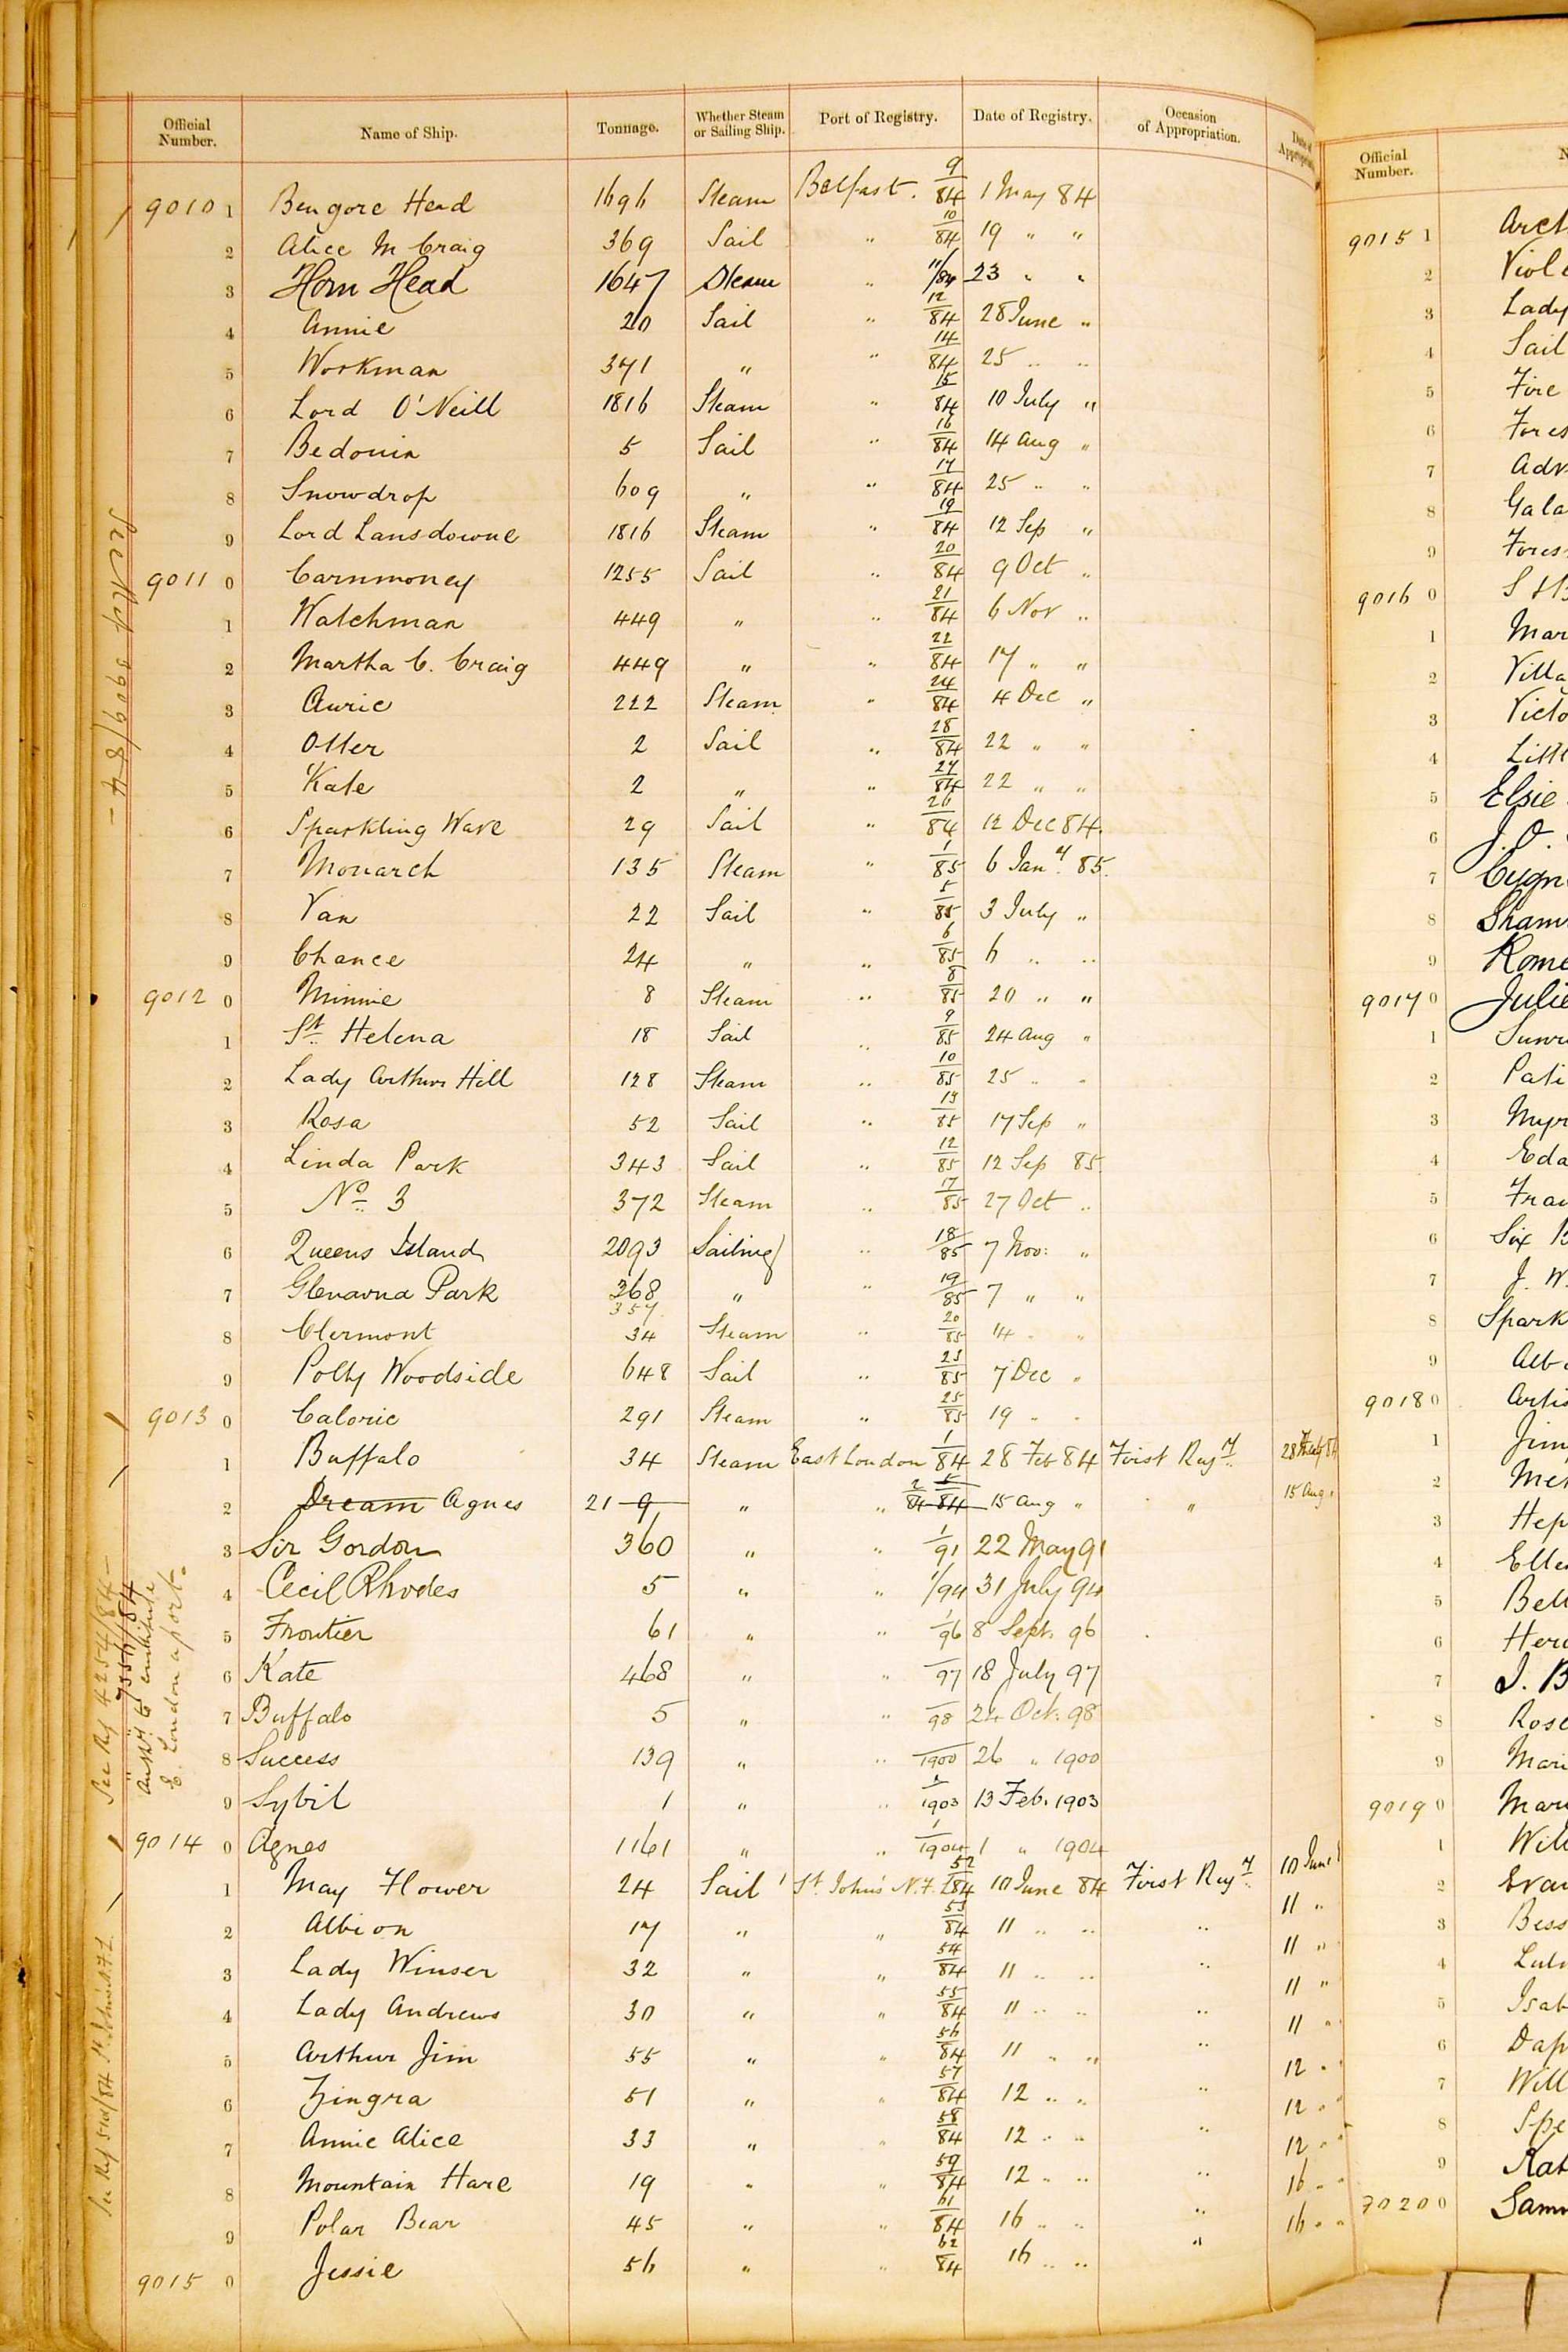 Official Number. Name of Ship. Tonnage. Whether Steam or Sailing Ship. Port of Registry. Date of Registry. Occasion of Appropriation. Date of
9010 1 Bengore Head 1696 Steam Belfast. 9/84 1 May 84
2 Alice M Craig 369 Sail " 10/84 19 " "
3 Horn Head 1647 Steam " 11/84 23 " "
4 Annie 20 Sail " 12/84 28 June "
5 Workman 371 " " 14/84 25 " "
6 Lord O'Neill 1816 Steam " 15/84 10 July "
7 Bedouin 5 Sail " 16/84 14 Aug "
8 Snowdrop 609 " " 17/84 25 " "
9 Lord Lansdowne 1816 Steam " 19/84 12 Sep "
9011 0 Carnmoney 1255 Sail " 20/84 9 Oct "
1 Watchman 449 " " 21/84 6 Nov "
2 Martha C. Craig 449 " " 22/84 17 " "
3 Auric 222 Steam " 24/84 4 Dec "
4 Otter 2 Sail " 28/84 22 " "
5 Kate 2 " " 27/84 22 " "
6 Sparkling Wave 29 Sail " 26/84 12 Dec 84.
7 Monarch 135 Steam " 1/85 6 Jany. 85.
8 Van 22 Sail " 5/85 3 July "
9 Chance 24 " " 6/85 6 " "
9012 0 Minnie 8 Steam " 8/85 20 " "
1 St. Helena 18 Sail " 9/85 24 Aug "
2 Lady Arthur Hill 128 Steam " 10/85 25 " "
3 Rosa 52 Sail " 13/85 17 Sep "
4 Linda Park 343 Sail " 12/85 12 Sep 85
5 No. 3 372 Steam " 17/85 27 Oct "
6 Queens Island 2093 Sailing " 18/85 7 Nov: "
7 Glenavna Park 368 " " 19/85 7 " "
357
8 Clermont 34 Steam " 20/85 14 " "
9 Polly Woodside 648 Sail " 23/85 7 Dec "
9013 0 Caloric 291 Steam " 25/85 19 " "
1 Buffalo 34 Steam East London 1/84 28 Feb 84 First Regy. 28
2 Dream Agnes 21 9 " " 2/84 5/84 15 Aug " " 15 Aug "
3 Sir Gordon 360 " " 1/91 22 May 91
4 Cecil Rhodes 5 " " 1/94 31 July 94
5 Frontier 61 " " 1/96 8 Sept. 96
6 Kate 468 " " /97 18 July 97
7 Buffalo 5 " " /98 24 Oct. 98
8 Success 139 " " /1900 26 " 1900
9 Sybil 1 " " /1903 13 Feb. 1903
9014 0 Agnes 1161 " " 1/1904 1 " 1904
1 May Flower 24 Sail St. John's N.F. 52/84 10 June 84 First Regy. 10 June
2 Albion 17 " " 53/84 11 " " " 11 "
3 Lady Winser 32 " " 54/84 11 " " " 11 "
4 Lady Andrews 30 " " 55/84 11 " " " 11 "
5 Arthur Jim 55 " " 56/84 11 " " " 11 "
6 Zingra 51 " " 57/84 12 " " " 12 "
7 Annie Alice 33 " " 58/84 12 " " " 12 "
8 Mountain Hare 19 " " 59/84 12 " " " 12 "
9 Polar Bear 45 " " 61/84 16 " " " 16 "
9015 0 Jessie 56 " " 62/84 16 " " " 16 "
See Ref 8909/84 –
See Ref 4254/84 –
7357/84
E. London a port.
See Ref 5101/84 St. John's N.F.L.
Official Number.
9015 1
2
3 Lady
4 Sail
5 Fire
6
7
8
9
9016 0
1
2
3
4
5 Elsie
6 J. O.
7
8
9
9017 0
1
2
3
4
5
6 Six
7 J. W.
8
9
9018 0
1
2
3
4
5
6
7
8
9
9019 0
1
2
3
4
5
6
7
8
9
70200